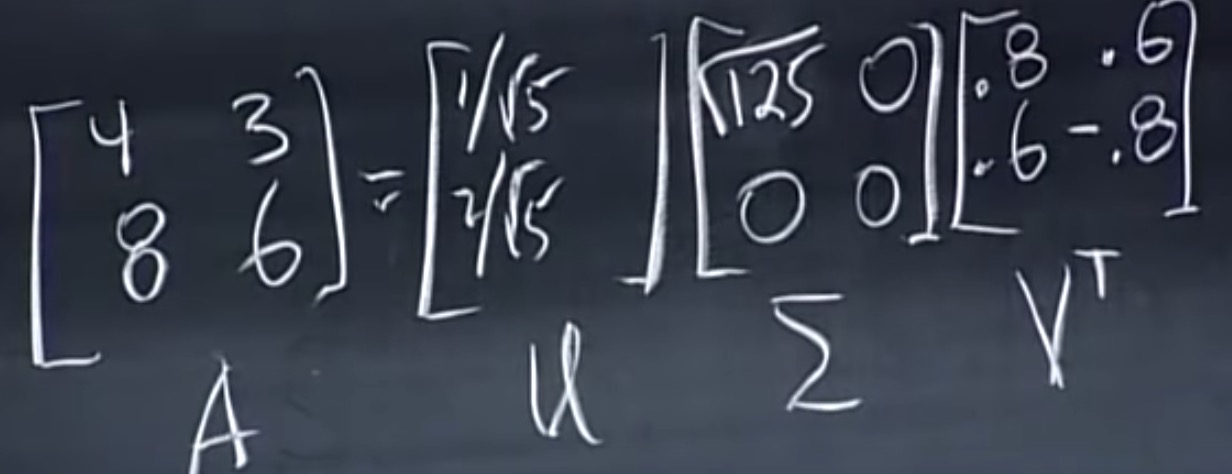 [4 3; 8 6] = [1/√5; 2/√5] [√125 0; 0 0] [.8 .6; .6 -.8]
A U Σ V^T